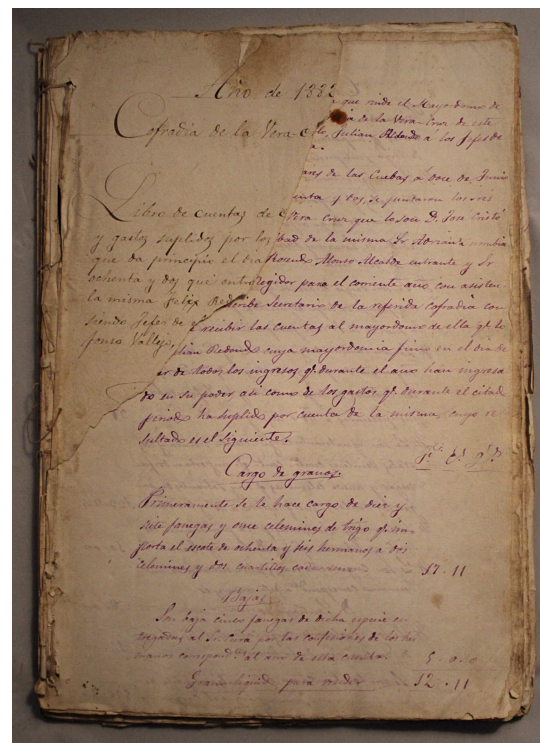 Año de 1882
que rinde el Mayordomo de
Cofradia de la Vera
ia de la Vera-Cruz de este
Julian Redondo á los Jefes de
ares de las Cuebas á doce de Junio
y dos, se juntaron los Sres
Libro de cuentas de
Vera Cruz que lo son D. Jose Cristó
y gastos suplidos por los
dad de la misma Sr
que da principio el dia
Rosendo Alonso Alcalde entrante y Sr
ochenta y dos que entro
regidor para el corriente año con asisten
la misma Felix Re
Secretario de la referida cofradia con
siendo Jefes de
recibir las cuentas al mayordomo de ella qe. fe
fonso Vallejo.
lian Redondo cuya mayordomia fina en el dia de
er de todos los ingresos qe. durante el año han ingresa
do en su poder, asi como de los gastos qe. durante el citado
periodo ha suplido por cuenta de la misma, cuyo re
sultado es el siguiente.
Cargo de granos.
Primeramente se le hace cargo de diez y
siete fanegas y once celemines de trigo qe. im
porta el escote de ochenta y seis hermanos a dos
celemines y dos cuartillos cada uno 17 . 11
Bajas
Son baja cinco fanegas de dicha especie en
tregadas al Sr. Cura por las confesiones de los her
manos correspondtes. al año de esta cuenta. 5 . 0 . 0
Grano liquido para vender 12 . 11